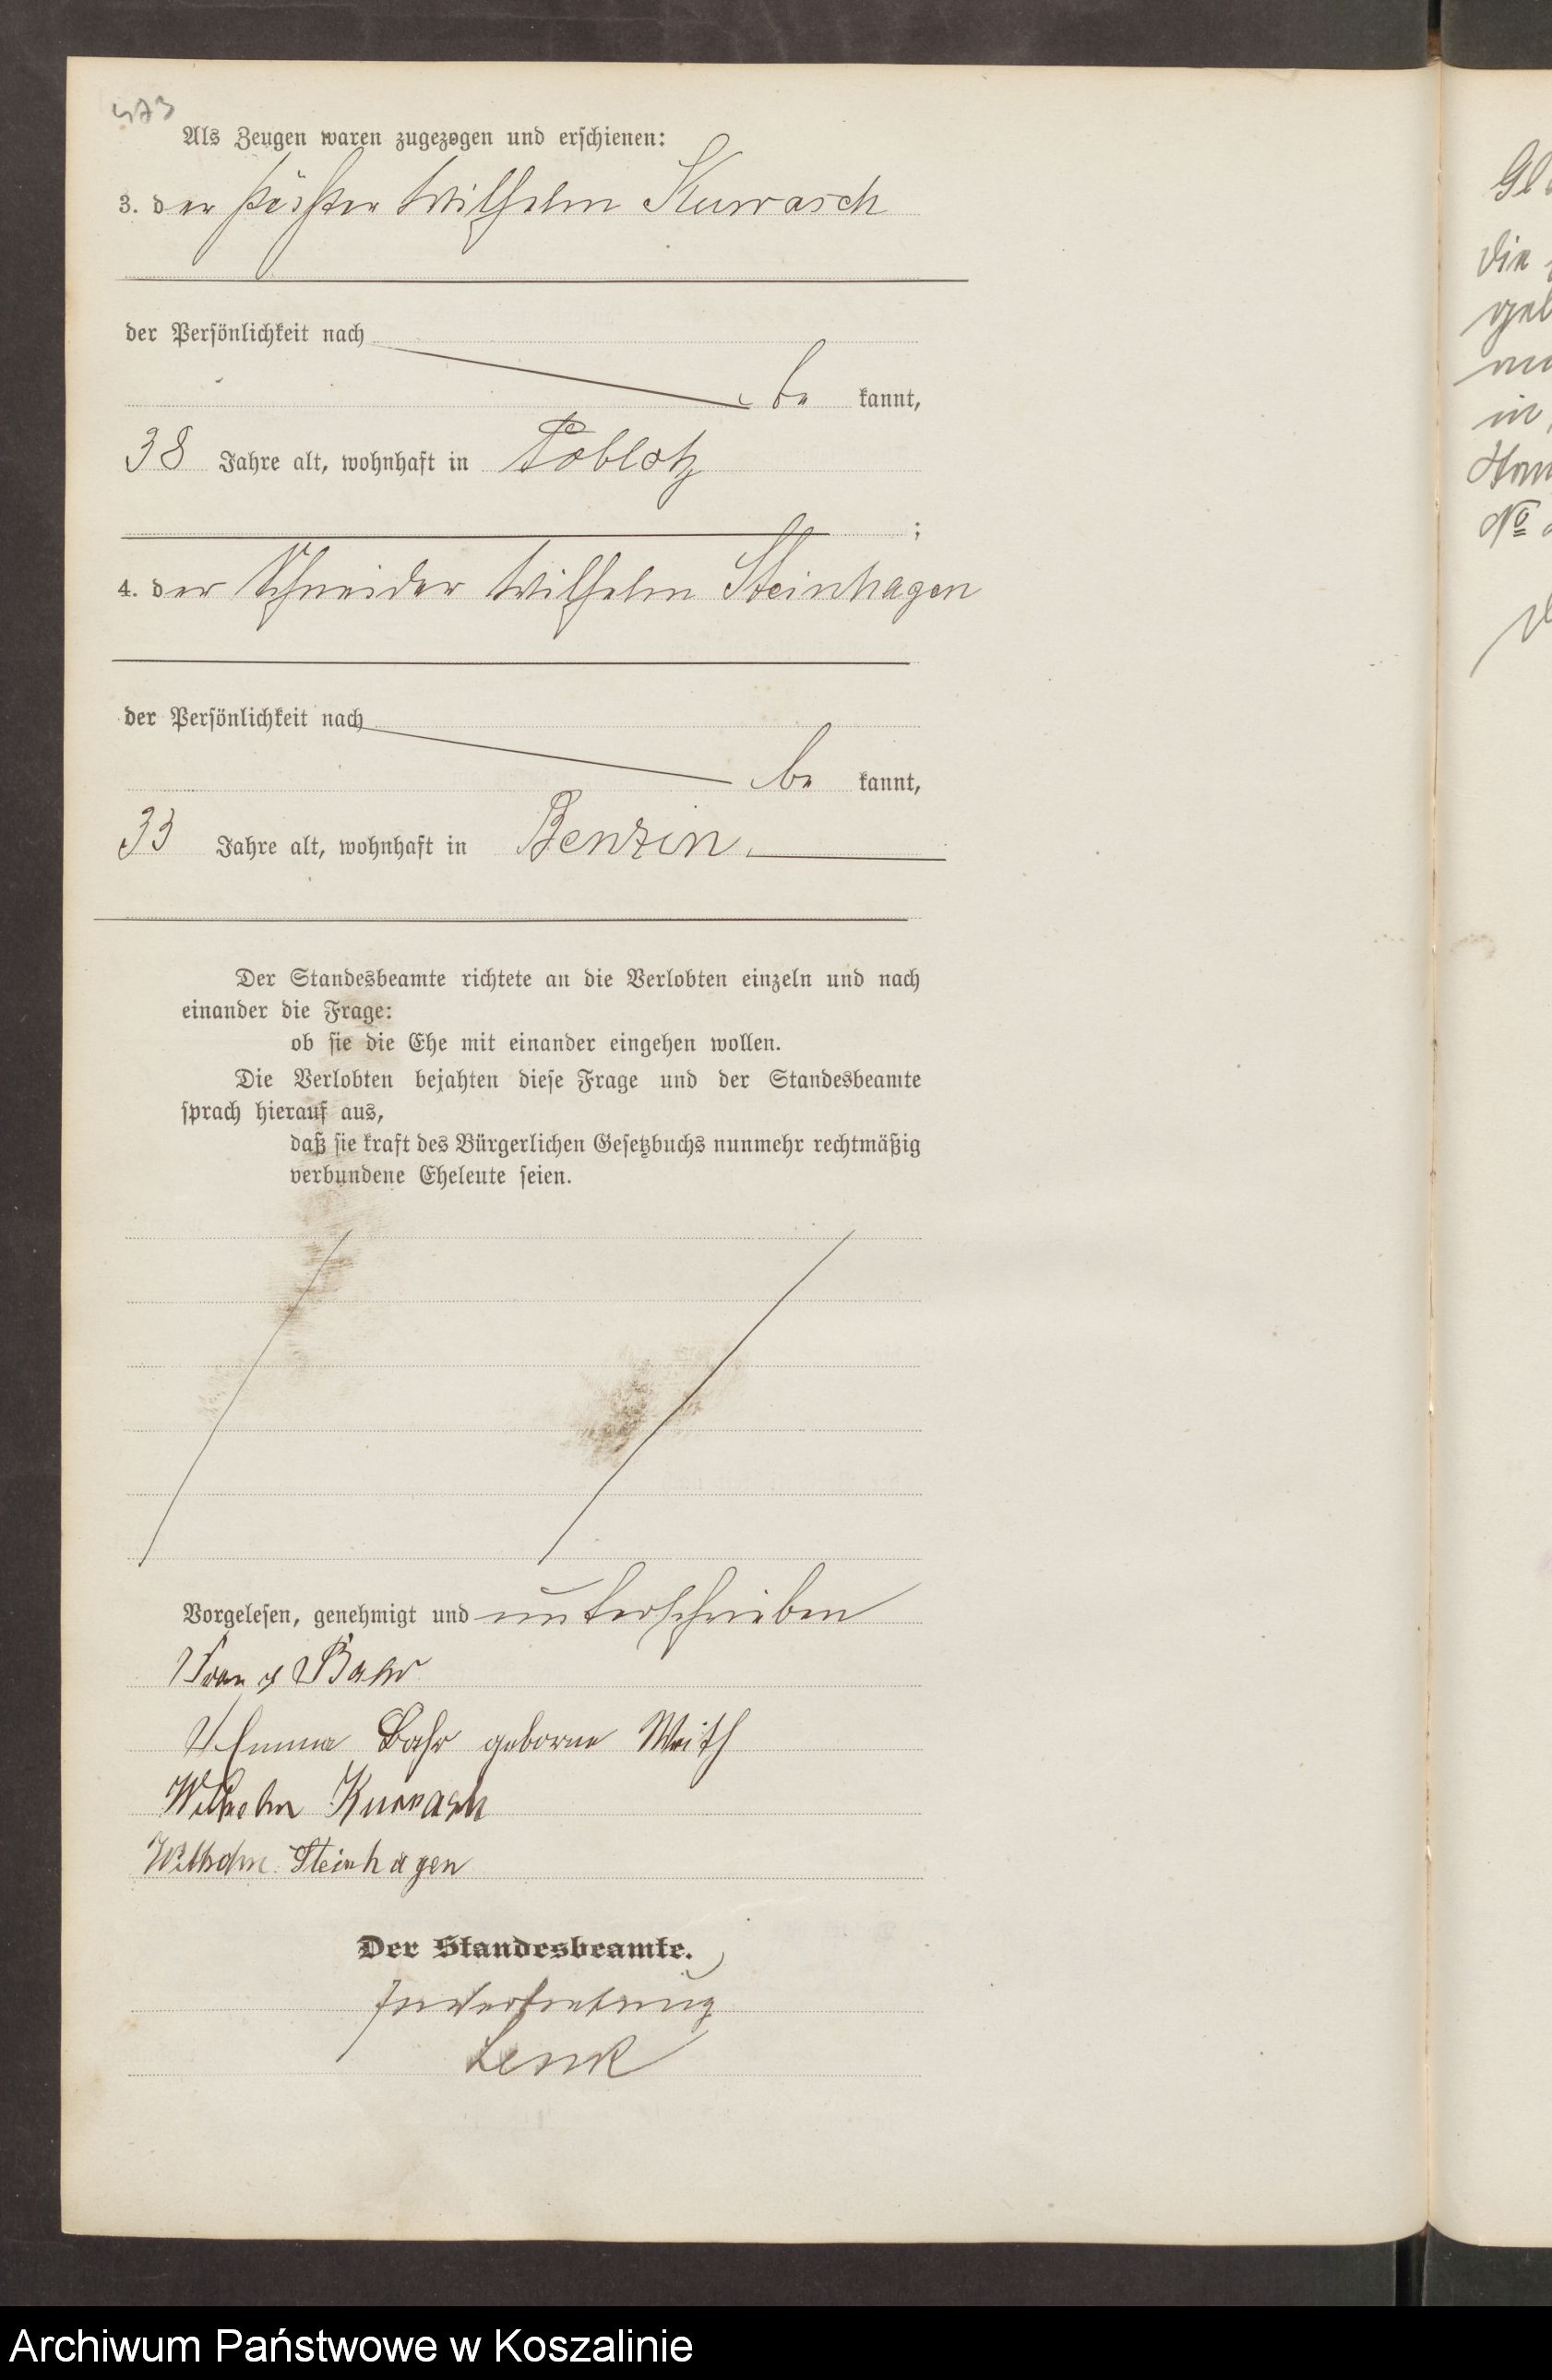 473
Als Zeugen waren zugezogen und erschienen:
3. der Wilhelm Kurrasch
der Persönlichkeit nach
be kannt,
38 Jahre alt, wohnhaft in Poblotz
;
4. der Schneider Wilhelm Steinhagen
der Persönlichkeit nach
be kannt,
33 Jahre alt, wohnhaft in Benzin.
Der Standesbeamte richtete an die Verlobten einzeln und nach
einander die Frage:
ob sie die Ehe mit einander eingehen wollen.
Die Verlobten bejahten diese Frage und der Standesbeamte
sprach hierauf aus,
daß sie kraft des Bürgerlichen Gesetzbuchs nunmehr rechtmäßig
verbundene Eheleute seien.
Vorgelesen, genehmigt und unterschrieben
Franz Bahr
Emma Bahr geborne Weith
Wilhelm Kurrasch
Wilhelm Steinhagen
Der Standesbeamte.
In Vertretung
Lenk
die
in
No
Archiwum Państwowe w Koszalinie